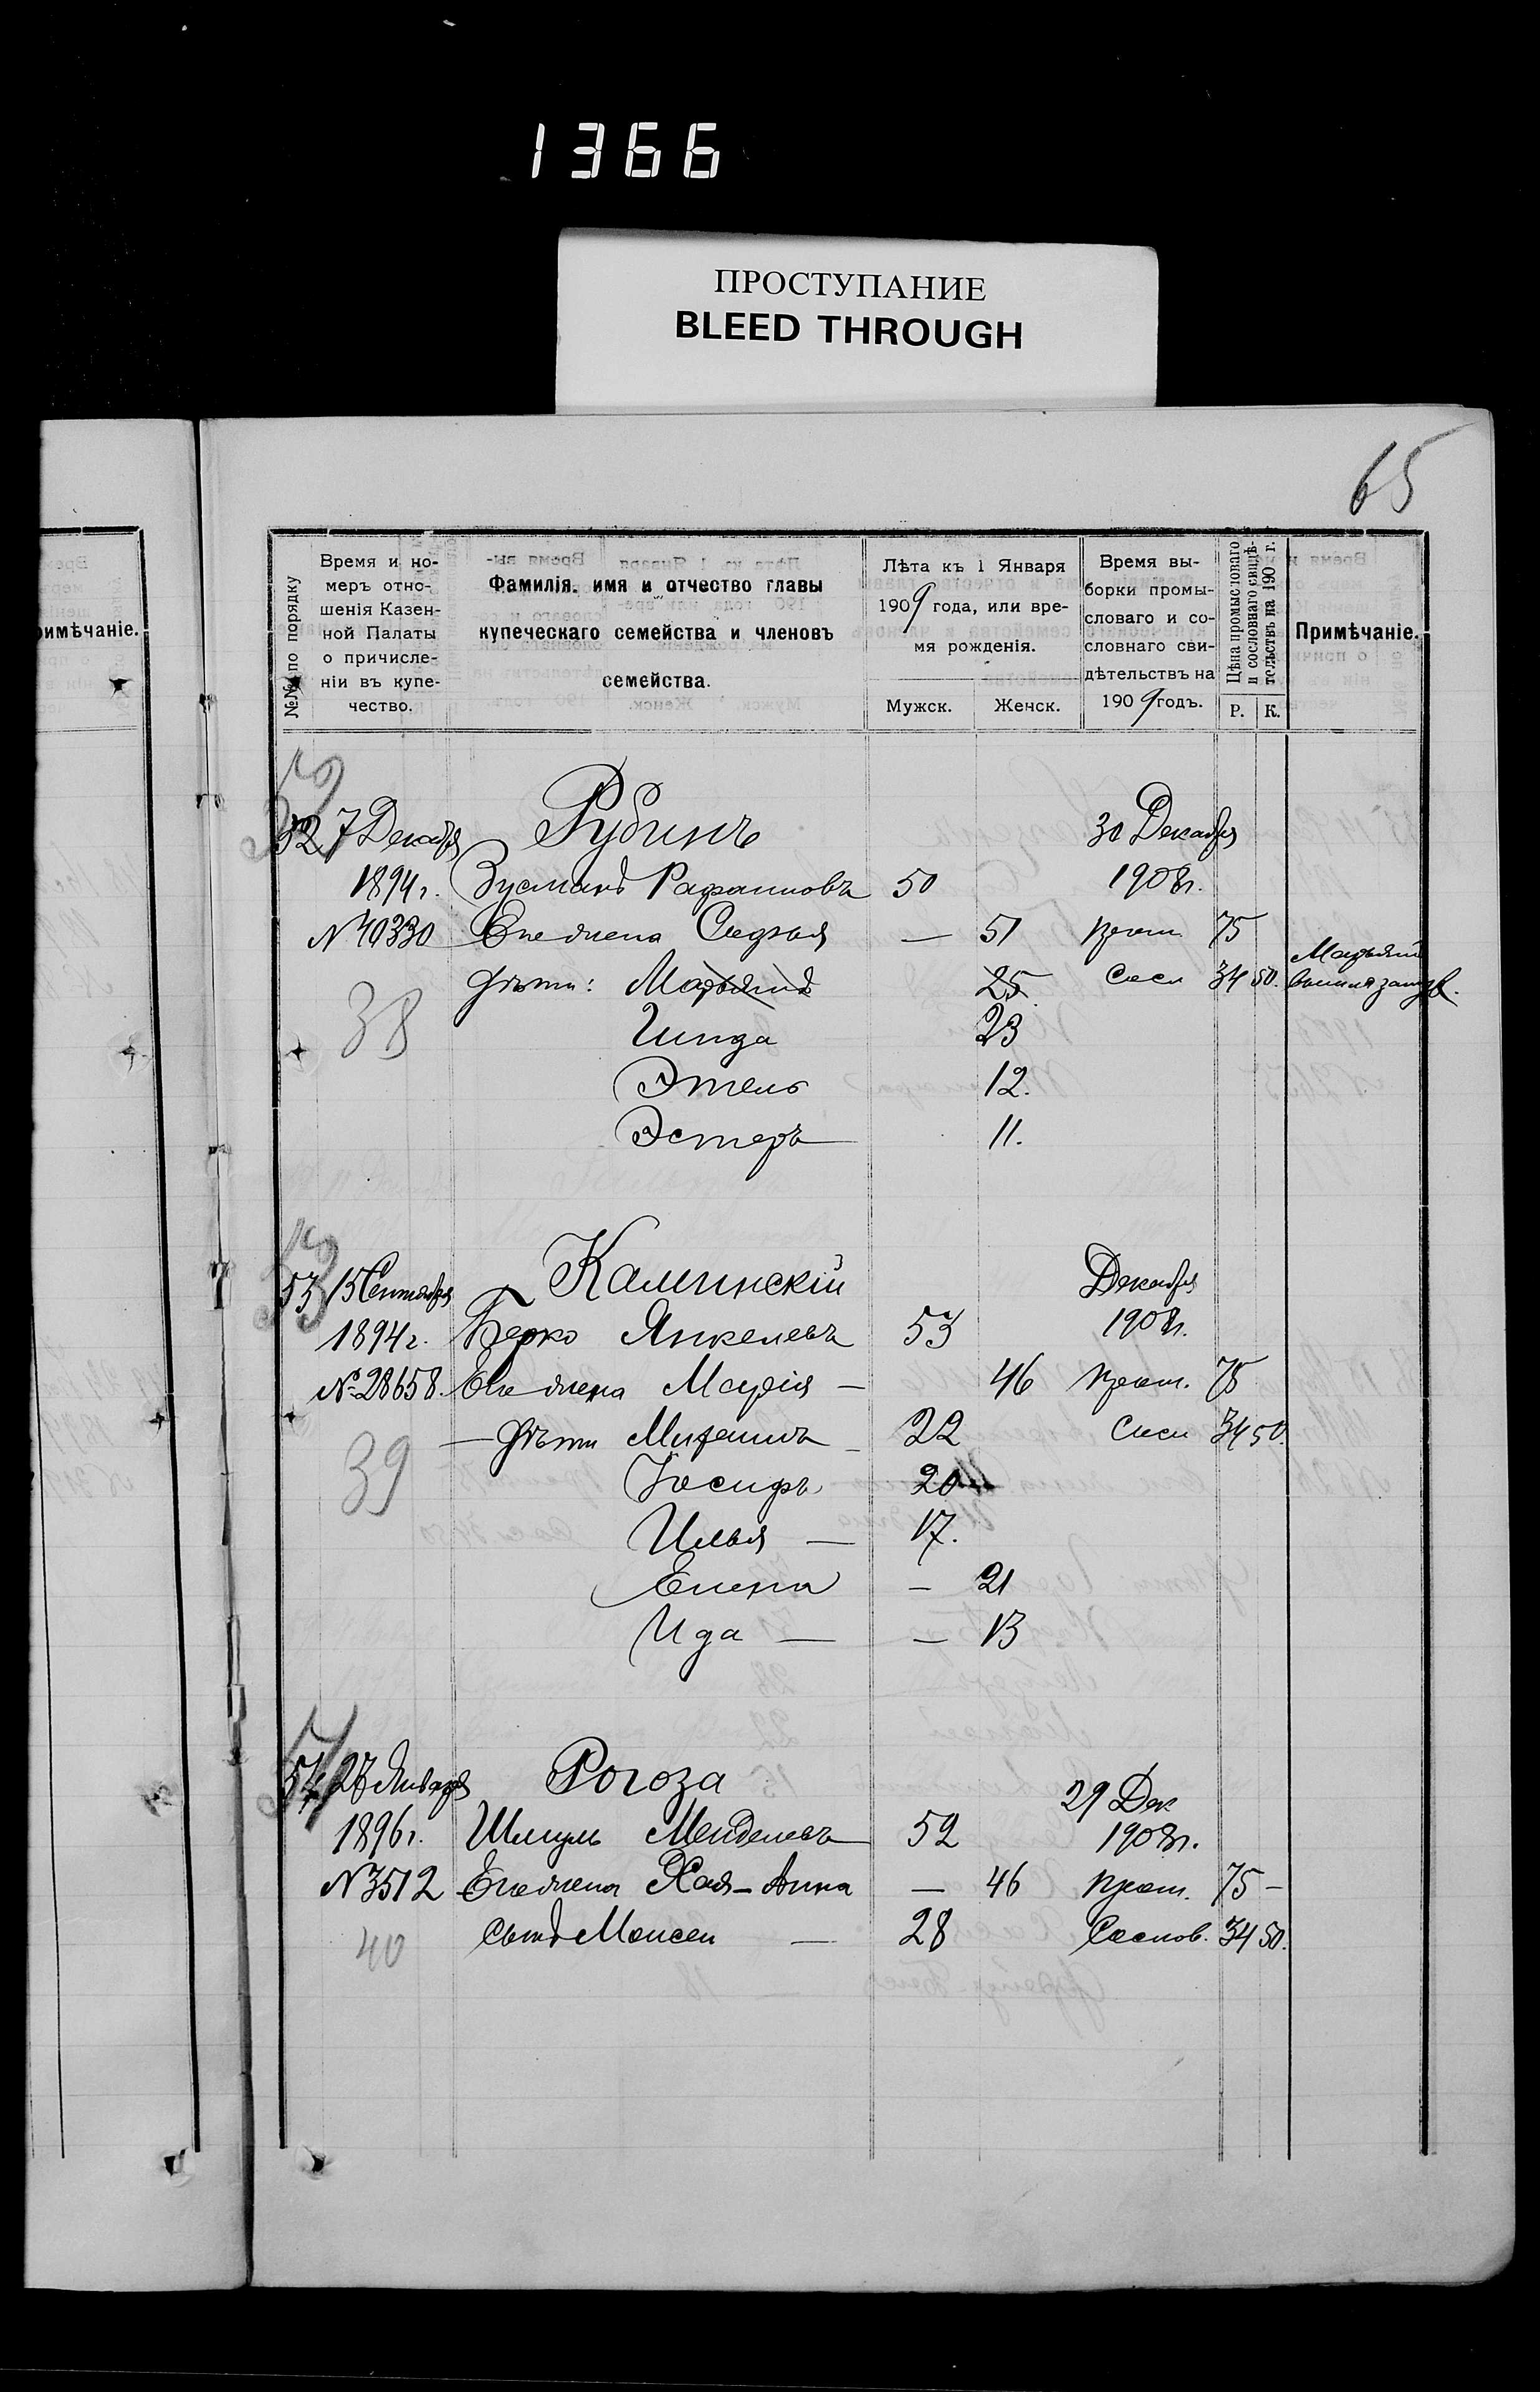 1366
ПРОСТУПАНИЕ
BLEED THROUGH
65
римѣчаніе.
№№ по порядку
Время и но-
меръ отно-
шенія Казен-
ной Палаты
о причисле-
ніи въ купе-
чество.
Фамилія, имя и отчество главы
купеческаго семейства и членовъ
семейства.
Лѣта къ 1 Января
1909 года, или вре-
мя рожденія.
Мужск. Женск.
Время вы-
борки промы-
словаго и со-
словнаго сви-
дѣтельствъ на
1909 годъ.
Цѣна промысловаго
и сословнаго свидѣ-
тельствъ на 190 г.
Р. К.
Примѣчаніе.
52 7 Декабря Рубинъ 30 Декабря
1894 г. Зусманъ Рафаиловъ 50 1908 г.
№ 40330 Его жена Седзья — 51 пром. 75
дѣти: Марьямъ 25 Сосл 34 50. Марьямъ вышла замуж.
38
Гинда 23
Этель 12.
Эстеръ 11.
53 15 Сентября Каминскій Декабря
1894 г. Берко Янкелевъ 53 1908 г.
№ 28658. Его жена Марія — 46 пром. 75
— дѣти Михаилъ 22 Сосл 34 50.
39
Іосифъ 20
Илья — 17.
Елена — 21
Ида — — 13
54 27 Января Рогоза 29 Дек
1896 г. Шмуль Менделевъ 52 1908 г.
№ 3512 Его жена Хая-Анна — 46 пром. 75 —
Сынъ Моисей — 28 Сослов. 34 50.
40